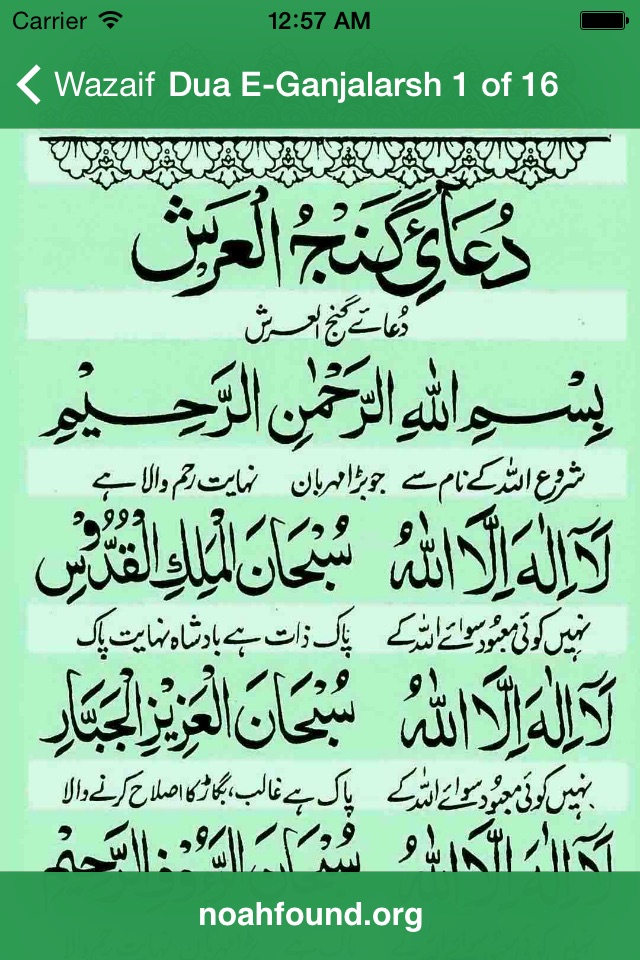 Carrier 12:57 AM
Wazaif Dua E-Ganjalarsh 1 of 16
دُعَائِ گَنجُ الْعَرَش
دُعائے گنج العرش
بِسْمِ اللهِ الرَّحْمٰنِ الرَّحِيْمِ
شروع اللہ کے نام سے جو بڑا مہربان نہایت رحم والا ہے
لَآ اِلٰهَ اِلَّا اللهُ سُبْحَانَ الْمَلِكِ الْقُدُّوْسِ
نہیں کوئی معبُود سوائے اللہ کے پاک ذات ہے بادشاہ نہایت پاک
لَآ اِلٰهَ اِلَّا اللهُ سُبْحَانَ الْعَزِيْزِ الْجَبَّارِ
نہیں کوئی معبُود سوائے اللہ کے پاک ہے غالب، بگاڑ کا اصلاح کرنے والا
لَآ اِلٰهَ اِلَّا اللهُ سُبْحَانَ الرَّءُوْفِ الرَّحِيْمِ
noahfound.org